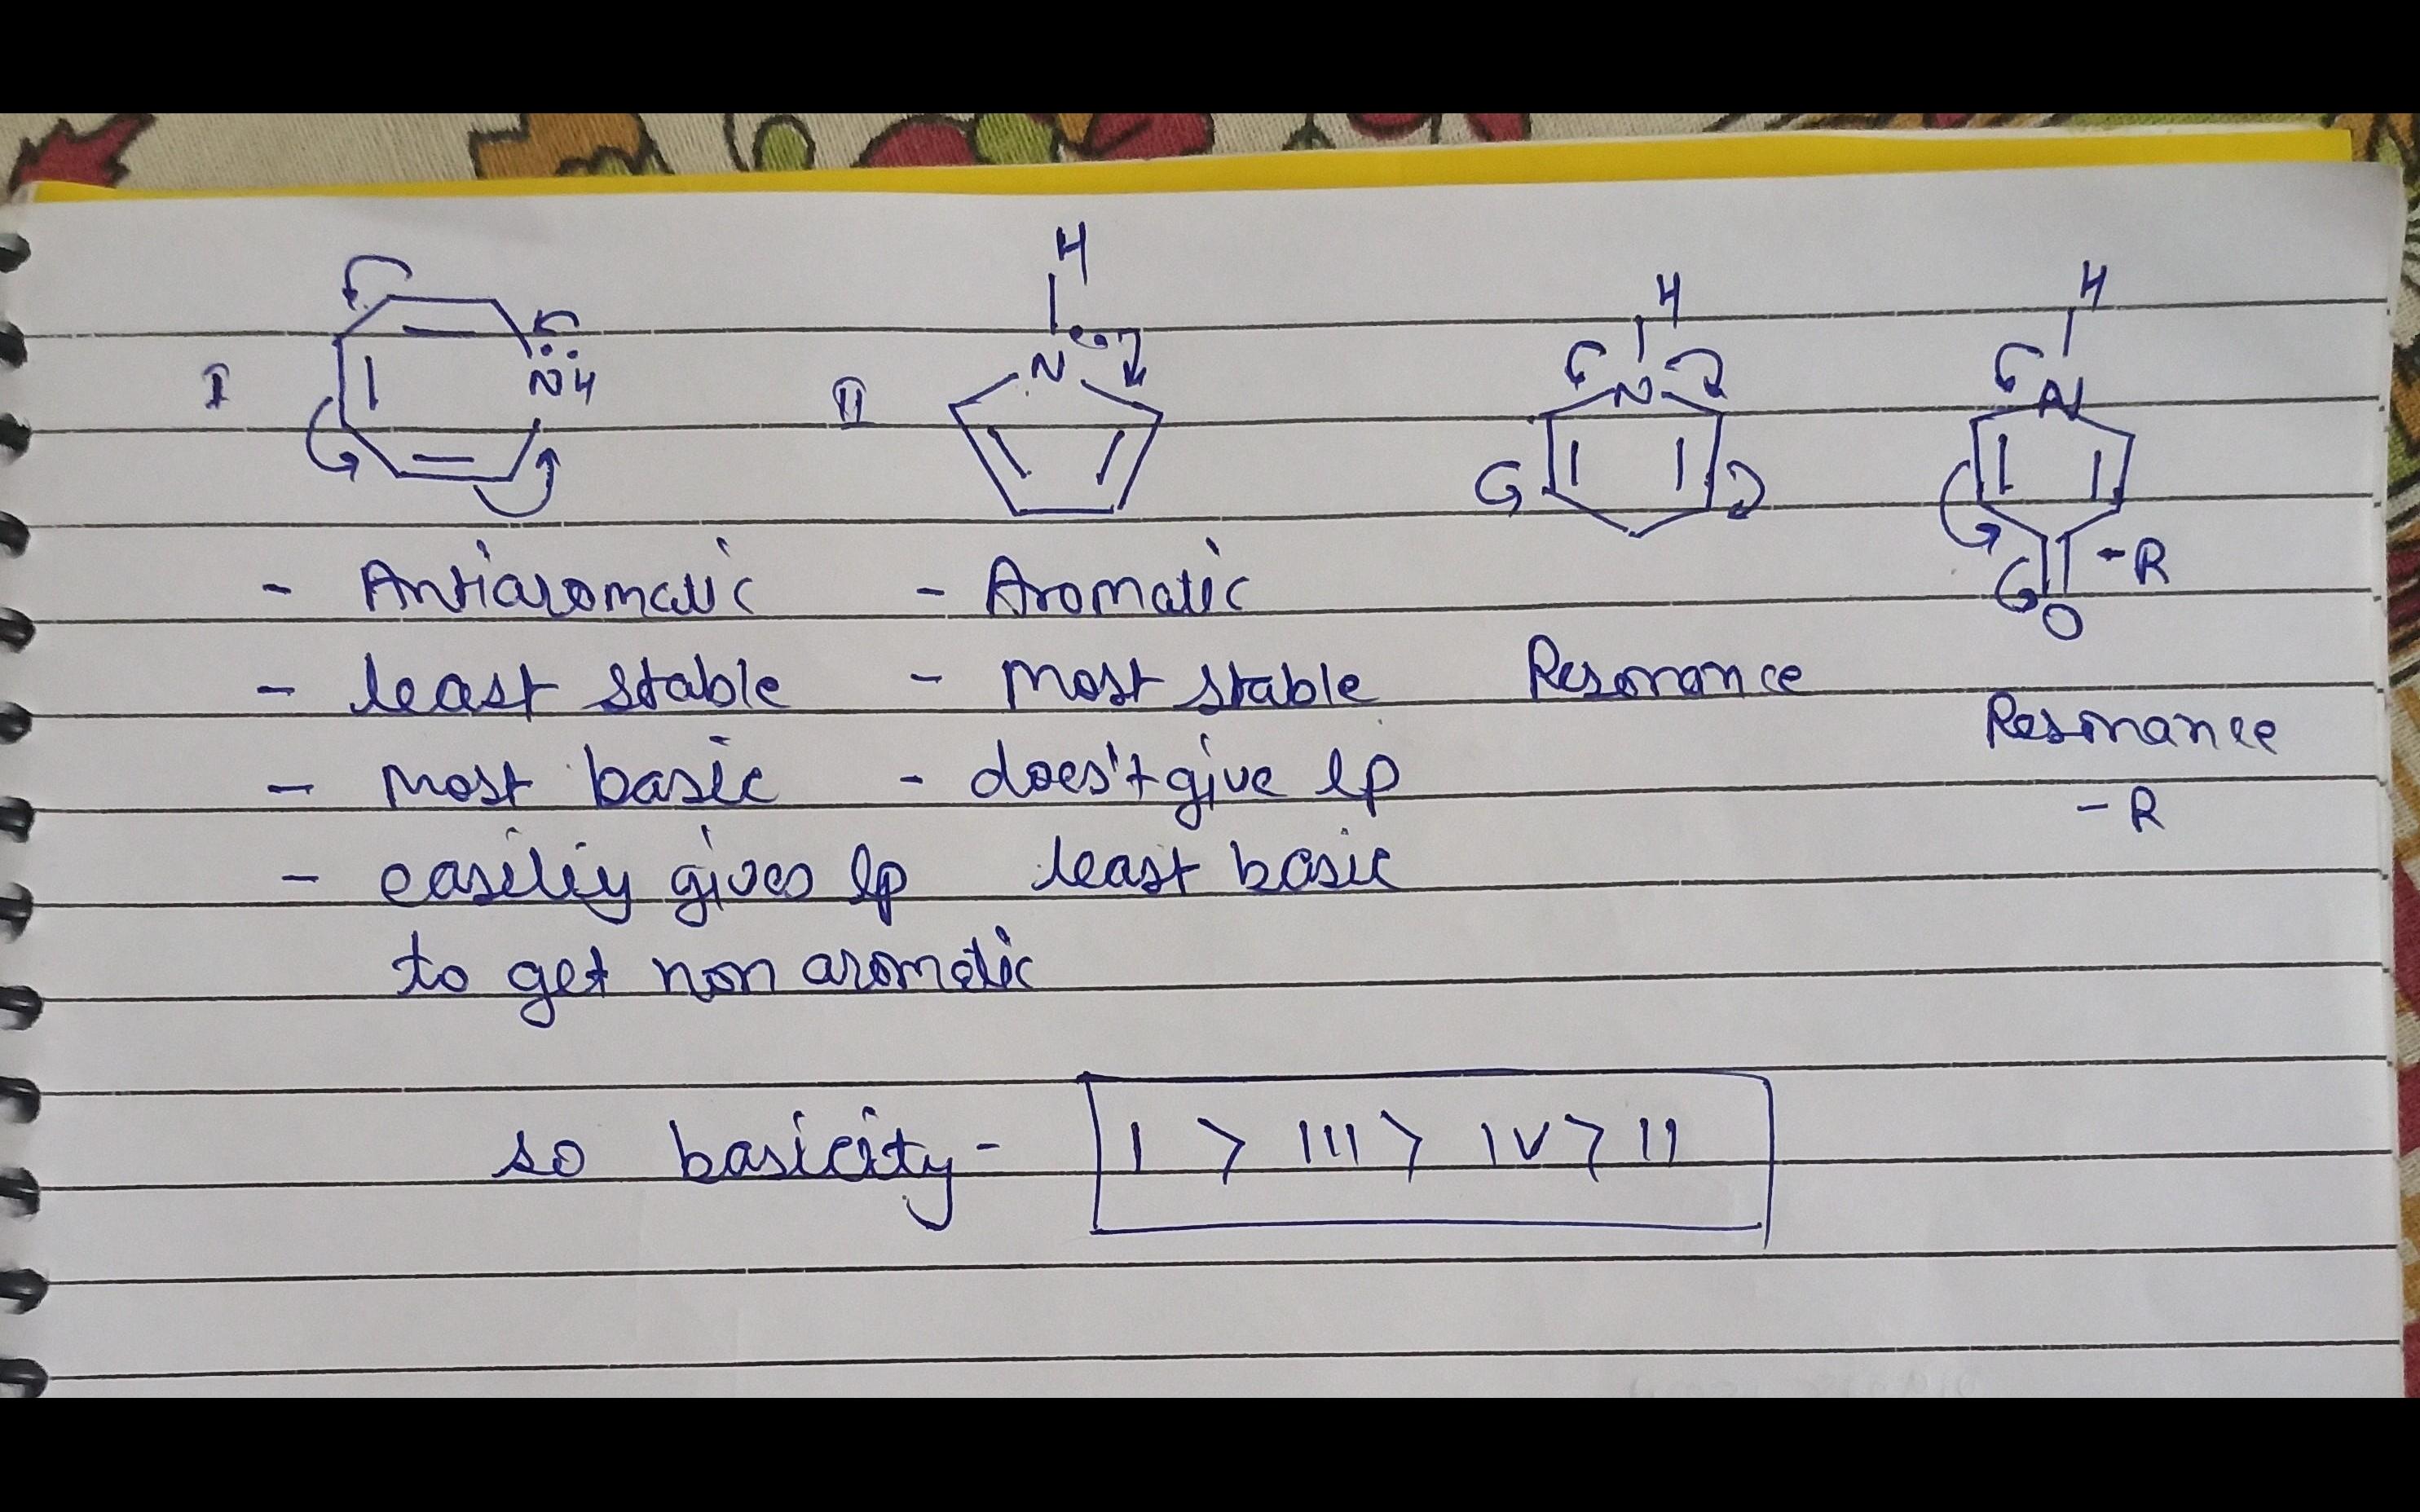 H
H
H
I
NH
II
N
N
N
-R
O
- Antiaromatic - Aromatic
- least stable - Most stable Resonance
Resonance
- Most basic - does't give lp
-R
- easiliy gives lp least basic
to get non aromatic
so basicity - I > III > IV > II